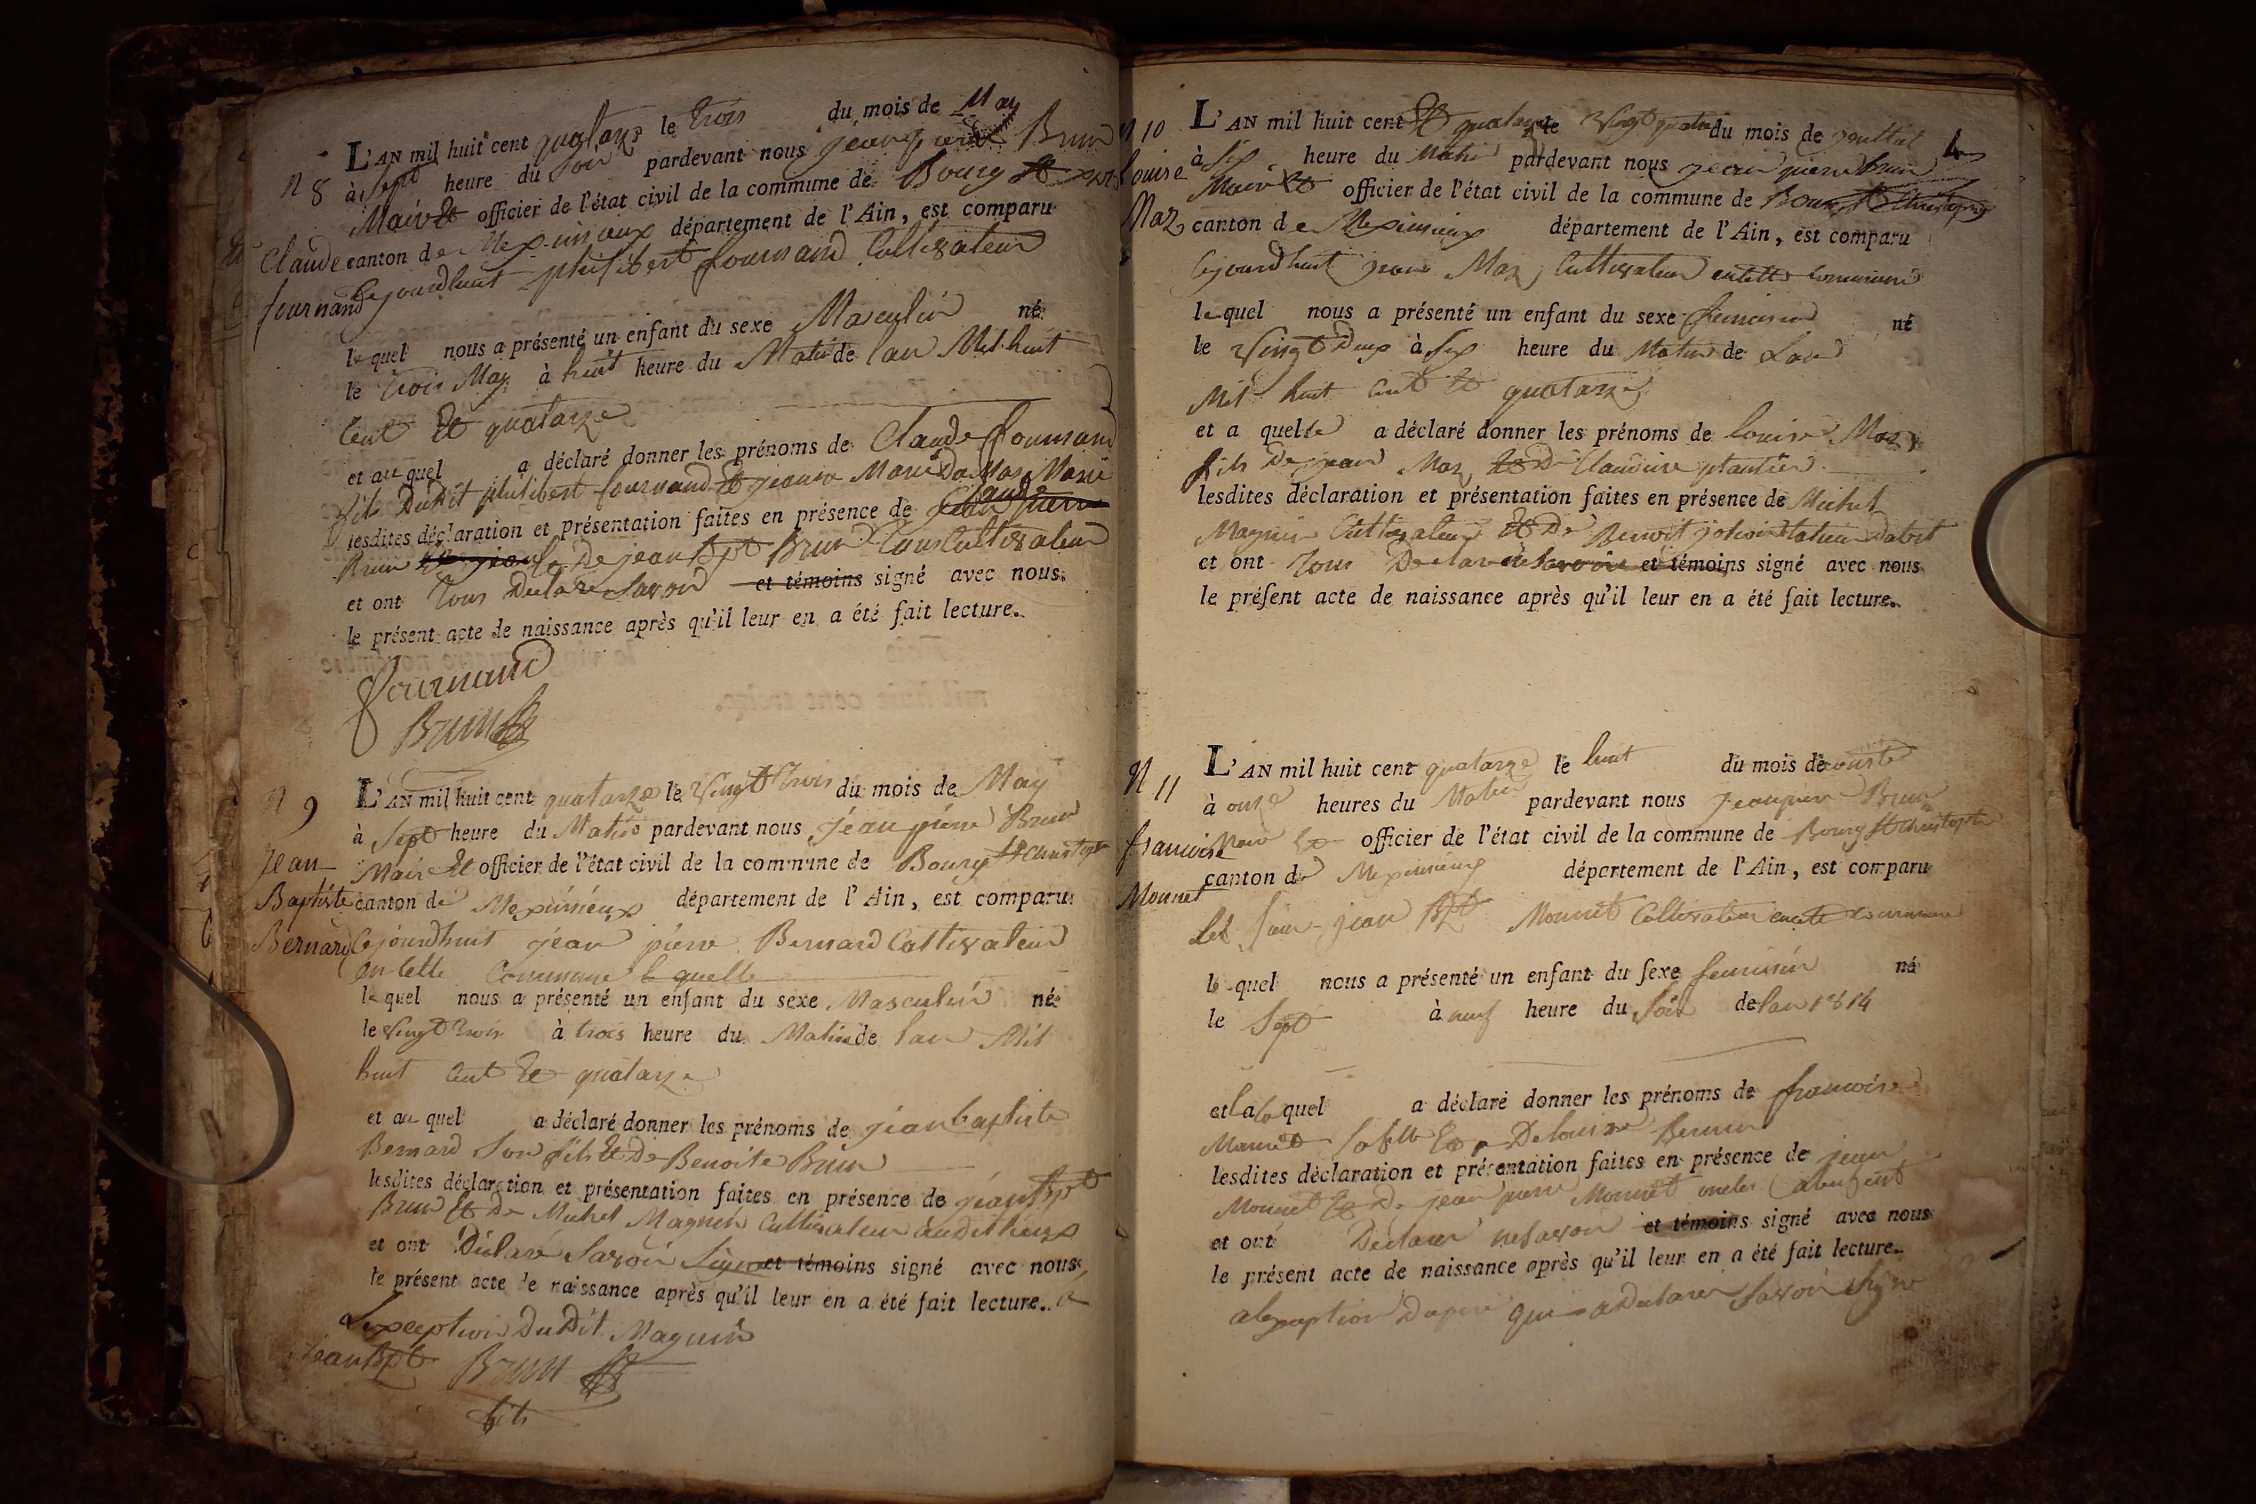 N 8
Claude
fournand
L'AN mil huit cent quatorze le trois du mois de May
à Sept heure du Soir pardevant nous jean pierre Brun
Maire et officier de l'état civil de la commune de Bourg St
canton de Meximieux département de l'Ain, est comparu
Cejourdhuit philibert fournand Cultivateur
lequel nous a présenté un enfant du sexe Masculin né
le trois May à huit heure du Matin de lan Mil huit
Cent et quatorze
et auquel a déclaré donner les prénoms de Claude fournand
fils Dudit philibert fournand et jeanne Marie
lesdites déclaration et présentation faites en présence de
Brun De jean Bpt Brun Tous Cultivateur
et ont Tous Déclaré Savoir et témoins signé avec nous
le présent acte de naissance après qu'il leur en a été fait lecture.
fournand
Brun
N 9
Jean
Baptiste
Bernard
L'AN mil huit cent quatorze le Vingt Trois du mois de May
à Sept heure du Matin pardevant nous jean pierre Brun
Maire et officier de l'état civil de la commune de Bourg St Christophe
canton de Meximieux département de l'Ain, est comparu
Cejourdhuit jean pierre Bernard Cultivateur
en Cette Commune le quelle
lequel nous a présenté un enfant du sexe Masculin né
le Vingt Trois à trois heure du Matin de lan Mil
huit Cent et quatorze
et au quel a déclaré donner les prénoms de jean baptiste
Bernard Son fils et De Benoite Brun
lesdites déclaration et présentation faites en présence de jean Bpt
Brun et De Michel Magnin Cultivateur
et ont Déclaré Savoir Signe et témoins signé avec nous
le présent acte de naissance après qu'il leur en a été fait lecture. a
Lexception Dudit Magnin
jean Bpt Brun
fils
N 10
Louise
Maz
L'AN mil huit cent et quatorze le Vingt quatre du mois de
à Six heure du Matin pardevant nous jean pierre Brun
Maire et officier de l'état civil de la commune de Bourg St Christophe
canton de Meximieux département de l'Ain, est comparu
Cejourdhuit jean Maz Cultivateur en cette Commune
lequel nous a présenté un enfant du sexe feminin né
le Vingt Deux à Six heure du Matin de Lan
Mil huit Cent et quatorze
et a quelle a déclaré donner les prénoms de Louise Maz
fils De jean Maz et De Claudine plantier
lesdites déclaration et présentation faites en présence de Michel
Magnin Cultivateur et De Benoit
et ont Tous Déclaré ne Savoir et témoins signé avec nous
le présent acte de naissance après qu'il leur en a été fait lecture.
N 11
francoise
Monnet
L'AN mil huit cent quatorze le huit du mois de aouste
à onze heures du Matin pardevant nous jean pierre Brun
Maire et officier de l'état civil de la commune de Bourg St Christophe
canton de Meximieux département de l'Ain, est comparu
jean Bpt Monnet Cultivateur en cette commune
le quel nous a présenté un enfant du sexe feminin né
le Sept à neuf heure du Soir de lan 1814
et a la quel a déclaré donner les prénoms de francoise
Monnet Sa fille et De Louise
lesdites déclaration et présentation faites en présence de jean
Monnet et De jean pierre Monnet oncles
et ont Déclarer ne Savoir et témoins signé avec nous
le présent acte de naissance après qu'il leur en a été fait lecture.
a lexception Du pere qui a Declarer Savoir signe